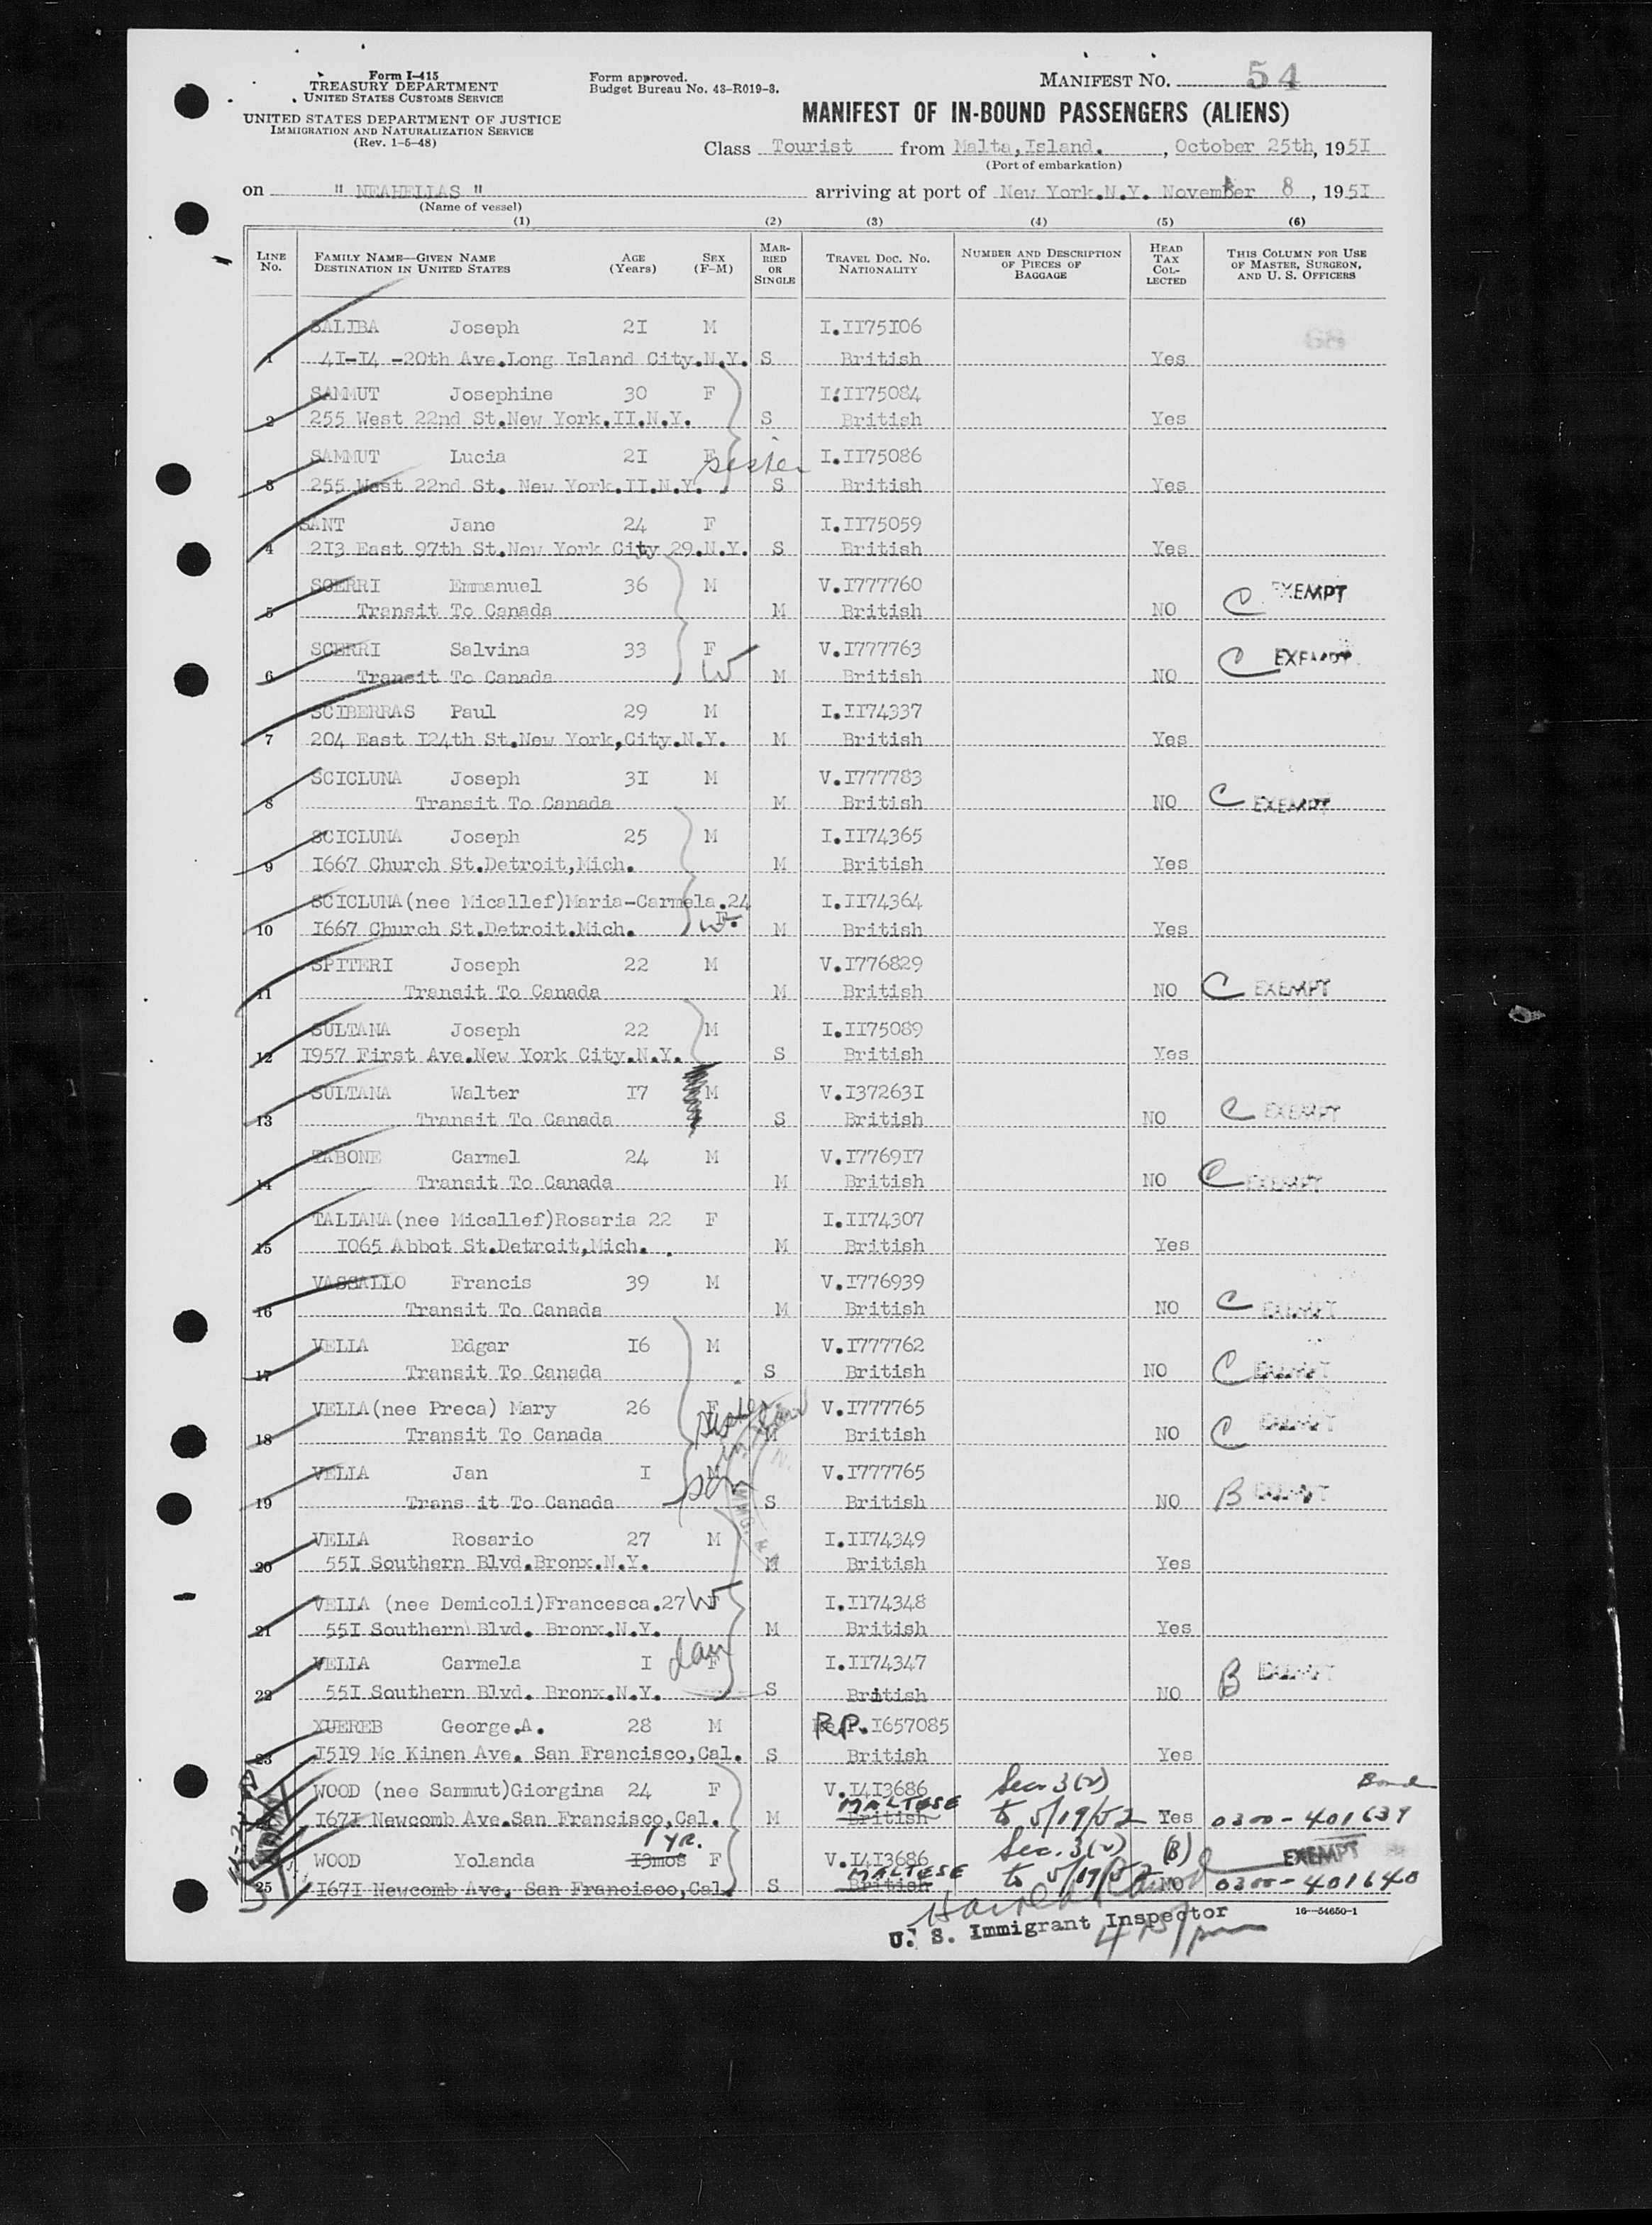 Form I-415
TREASURY DEPARTMENT
UNITED STATES CUSTOMS SERVICE
UNITED STATES DEPARTMENT OF JUSTICE
IMMIGRATION AND NATURALIZATION SERVICE
(Rev. 1-5-48)
Form approved.
Budget Bureau No. 43-R019-3.
MANIFEST NO. 54
MANIFEST OF IN-BOUND PASSENGERS (ALIENS)
Class Tourist from Malta,Island. , October 25th, 1951
(Port of embarkation)
on " NEAHELLAS " arriving at port of New York.N.Y. November 8 , 1951
(Name of vessel)
(1) (2) (3) (4) (5) (6)
LINE NO. FAMILY NAME—GIVEN NAME DESTINATION IN UNITED STATES AGE (Years) SEX (F-M) MARRIED OR SINGLE TRAVEL DOC. NO. NATIONALITY NUMBER AND DESCRIPTION OF PIECES OF BAGGAGE HEAD TAX COLLECTED THIS COLUMN FOR USE OF MASTER, SURGEON, AND U. S. OFFICERS
SALIBA Joseph 2I M I.II75I06
1 4I-I4 -20th Ave.Long Island City.N.Y. S British Yes
SAMMUT Josephine 30 F I.II75084
2 255 West 22nd St.New York.II.N.Y. S British Yes
SAMMUT Lucia 2I F sister I.II75086
3 255 West 22nd St. New York.II.N.Y. S British Yes
SANT Jane 24 F I.II75059
4 2I3 East 97th St.New York City 29.N.Y. S British Yes
SCERRI Emmanuel 36 M V.I777760 C EXEMPT
5 Transit To Canada M British NO
SCERRI Salvina 33 F W V.I777763 C EXEMPT
6 Transit To Canada M British NO
SCIBERRAS Paul 29 M I.II74337
7 204 East I24th St.New York,City.N.Y. M British Yes
SCICLUNA Joseph 3I M V.I777783
8 Transit To Canada M British NO C EXEMPT
SCICLUNA Joseph 25 M I.II74365
9 I667 Church St.Detroit,Mich. M British Yes
SCICLUNA(nee Micallef)Maria-Carmela.24 F. W I.II74364
10 I667 Church St.Detroit.Mich. M British Yes
SPITERI Joseph 22 M V.I776829
11 Transit To Canada M British NO C EXEMPT
SULTANA Joseph 22 M I.II75089
12 I957 First Ave.New York City.N.Y. S British Yes
SULTANA Walter I7 M V.I37263I
13 Transit To Canada S British NO C EXEMPT
TABONE Carmel 24 M V.I7769I7
14 Transit To Canada M British NO C EXEMPT
TALIANA(nee Micallef)Rosaria 22 F I.II74307
15 I065 Abbot St.Detroit,Mich. M British Yes
VASSALLO Francis 39 M V.I776939
16 Transit To Canada M British NO C EXEMPT
VELLA Edgar I6 M V.I777762
17 Transit To Canada S British NO C EXEMPT
VELLA(nee Preca) Mary 26 F sister in law V.I777765
18 Transit To Canada M British NO C EXEMPT
VELLA Jan I M son V.I777765
19 Trans it To Canada S British NO B EXEMPT
VELLA Rosario 27 M I.II74349
20 55I Southern Blvd.Bronx.N.Y. M British Yes
VELLA (nee Demicoli)Francesca.27 F W I.II74348
21 55I Southern Blvd. Bronx.N.Y. M British Yes
VELLA Carmela I F dau I.II74347
22 55I Southern Blvd. Bronx.N.Y. S British NO B EXEMPT
XUEREB George.A. 28 M R.P. I657085
23 I5I9 Mc Kinen Ave. San Francisco,Cal. S British Yes
WOOD (nee Sammut)Giorgina 24 F V.I4I3686 Sec. 3(2) Bond
I67I Newcomb Ave.San Francisco,Cal. M British MALTESE to 5/19/52 Yes 0300-401639
WOOD Yolanda I3mos 1 yr. F V.I4I3686 Sec. 3(2) (B) EXEMPT
25 I67I Newcomb Ave. San Francisco,Cal. S British MALTESE to 5/19/52 NO 0300-401640
U. S. Immigrant Inspector
16—54650-1